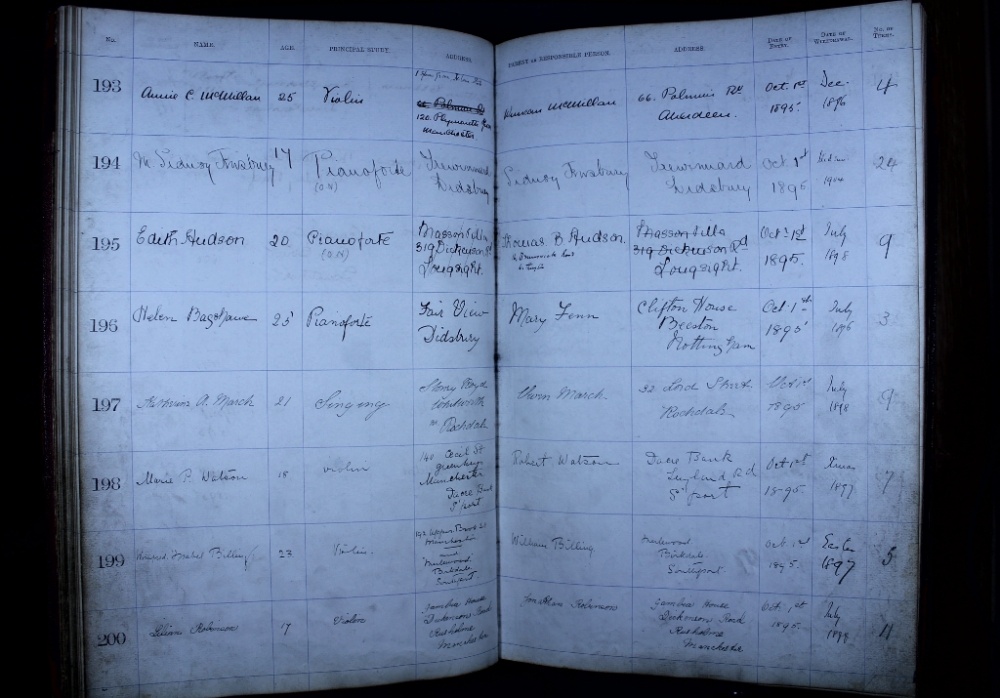 No. NAME. AGE. PRINCIPAL STUDY. ADDRESS. PARENT or RESPONSIBLE PERSON. ADDRESS. DATE OF ENTRY. DATE OF WITHDRAWAL. NO. OF TERMS.
193 Annie C. McMillan 25 Violin
66 Palmerin Rd
120. Plymouth
Manchester
Duncan McMillan
66. Palmerin Rd
Aberdeen.
Oct. 1st
1895.
Dec.
1896
4
194 M Sidney 17 Pianoforte
(O.N)
Didsbury
Sidney
Didsbury
Oct 1st
1895
24
195 Edith Hudson 20 Pianoforte
(O.N)
Masson Villa
319 Dickenson Rd
Longsight.
Thomas B Hudson.
Masson Villa
319 Dickenson Rd
Longsight.
Oct. 1st
1895.
July
1898
9
196 Helen Bagshawe 25 Pianoforte
Fair View
Didsbury
Mary Fenn
Clifton House
Beeston
Nottingham
Oct 1st
1895
July
1896
3
197 A. March 21 Singing
Whitworth
Rochdale
March
32 Lord Street
Rochdale
Oct 1st
1895
July
1898
9
198 Marie P. Watson 18 Violin
140 Cecil St
Greenheys
Manchester
Dacre Bank
S'port
Robert Watson
Dacre Bank
Leyland Rd
S'port
Oct 1st
1895
Xmas
1897
7
199 Isabel Billing 23 Violin.
192 Upper Brook St
Manchester
and
Birkdale
Southport
William Billing
Birkdale
Southport
Oct 1st
1895.
Easter
1897
5
200 Lilian Robinson 17 Violin
Gambia House
Dickenson Road
Rusholme
Manchester
Jonathan Robinson
Gambia House
Dickenson Road
Rusholme
Manchester
Oct. 1st
1895.
July
1899
11